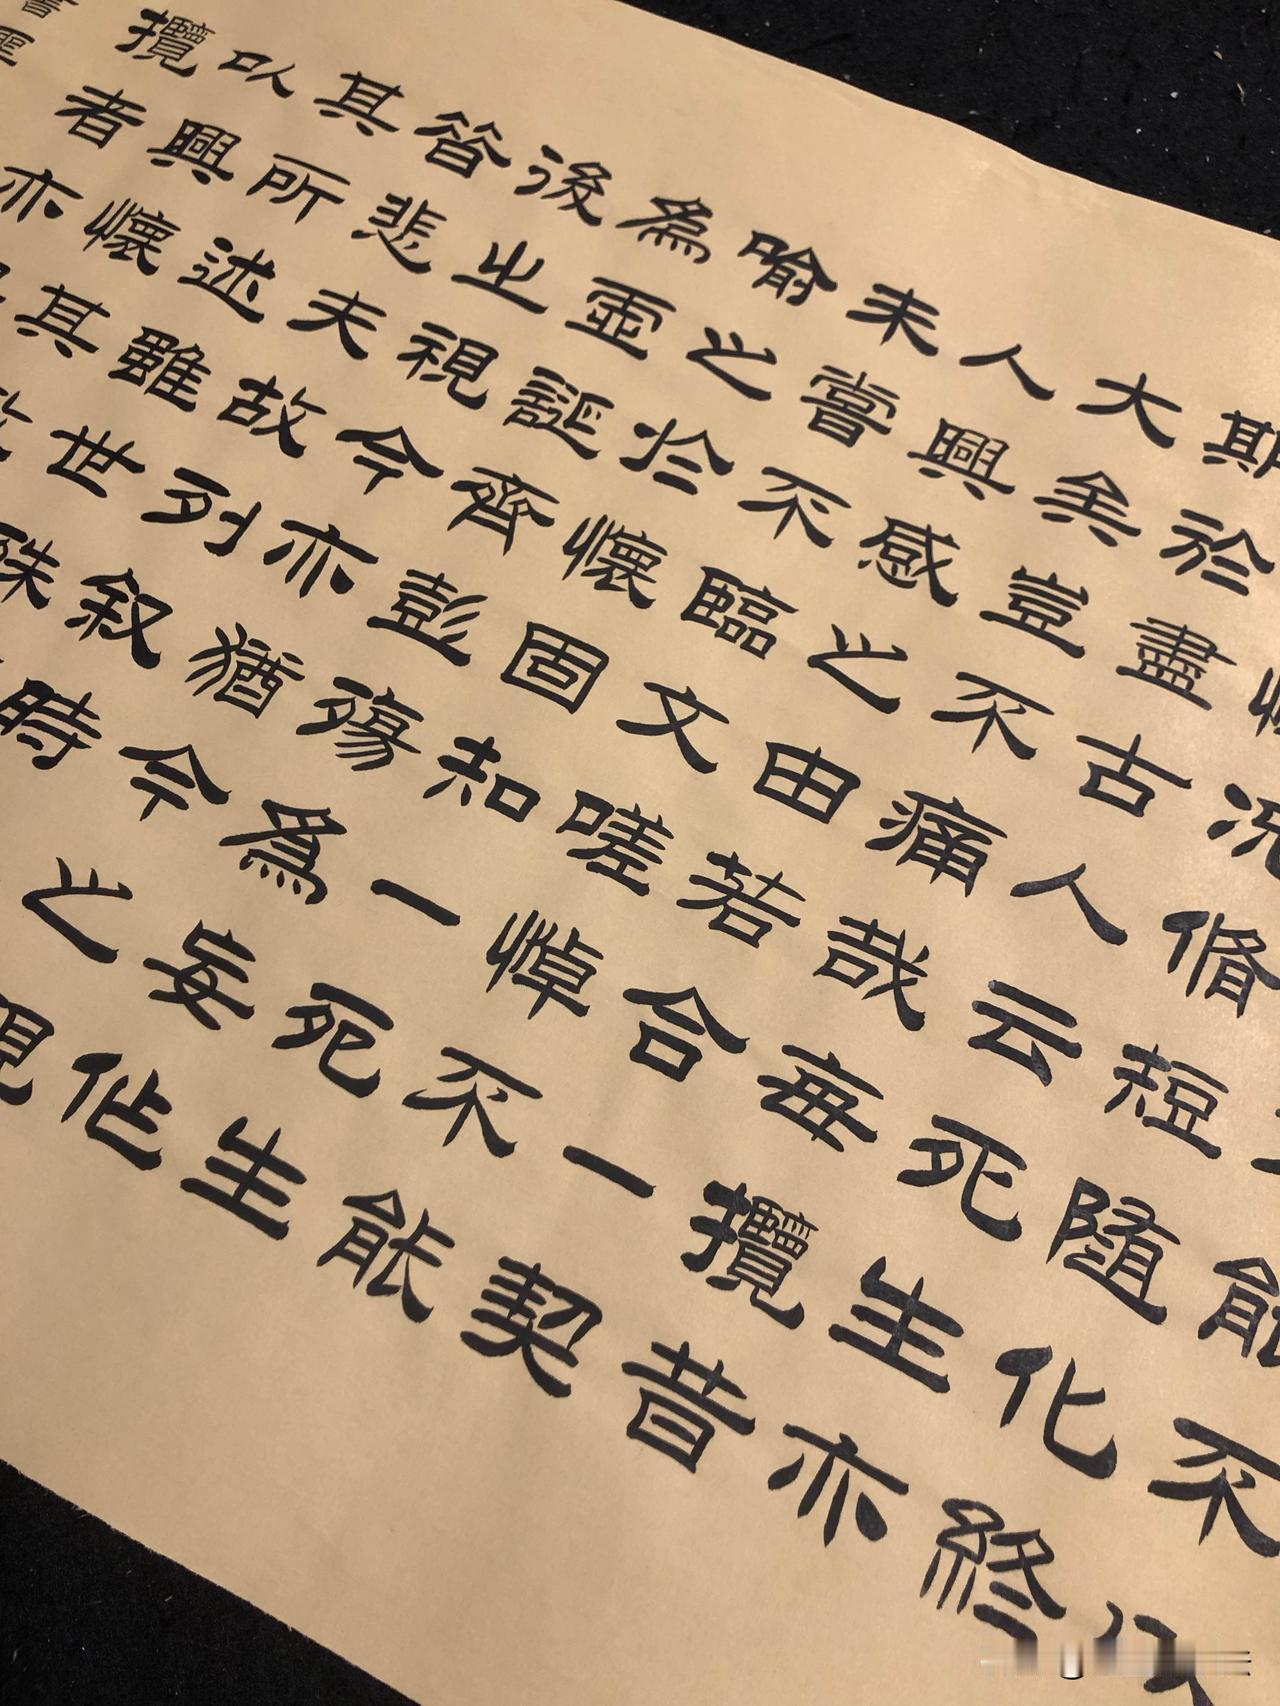 能不以
懷況脩短隨化終
期於盡古人云死生亦
大矣豈不痛哉每攬昔
人興感之由若合一契
未嘗不臨文嗟悼不能
喻之於懷固知一死生
為虛誕齊彭殤為妄作
後之視今亦猶今之視
昔悲夫故列叙時
其所述雖世殊
以興懷其致
攬者亦